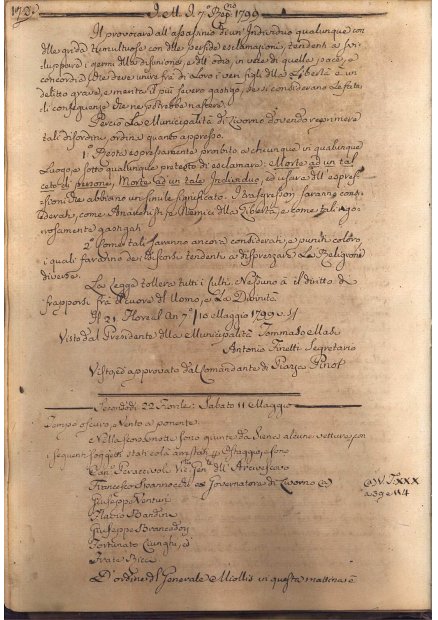 172.
I. M. I. 7° Rep.no 1799
Il provocare all'assasinio di un Individuo qualunque con
delle grida tumultuose con delle perfide esclamazioni, tendenti a svi-
luppare i germi della disunione, e dell'odio, in vece di quella pace, e
concordia, che deve unire fra di loro i veri figli della Libertà è un
delitto grave, e merita il più severo gastigo, se si considerano le fata-
li conseguenze che ne potrebbe nascere.
Perciò La Municipalità di Livorno dovendo reprimere
tali disordini, ordina quanto appresso.
1° Resta espressamente proibito a chiunque in qualunque
Luogo, e sotto qualunque pretesto di esclamare: Morte ad un tal
ceto di persone, Morte ad un tale Individuo, ed usare dell'espres-
sioni che abbiano un simile significato. I trasgressori saranno consi-
derati, come Anarchisti, e Nemici della Libertà, e come tali rigo-
rosamente gastigati.
2° Come tali saranno ancora considerati, e puniti coloro,
i quali faranno dei discorsi tendenti a disprezzare La Religione
diverse.
La Legge tollera tutti i culti. Nessuno à il diritto di
frapporsi fra il cuore dell'Uomo, e La Divinità.
21 Floreal An 7° / 10 Maggio 1799
Visto dal Presidente della Municipalità Tommaso Masi
Antonio Finetti Segretario
Visto, ed approvato dal Comandante di Piazza Pinot
22 Fiorile: Sabato 11 Maggio
Tempo oscuro, Vento a ponente.
Nella scorsa notte sono giunte da Siena alcune vetture, con
i seguenti soggetti stati colà arrestati Ostaggio, e sono
Can.co dell'Arcivescovo
Francesco Spannocchi ex Governatore di Livorno (a)
(a) V. T. XXX
a 39 e 114
Giuseppe Venturi
Flavio Bandini
Giuseppe Brancadori
Fortunato è
Frate
D'ordine del Generale Miollis in questa mattina è